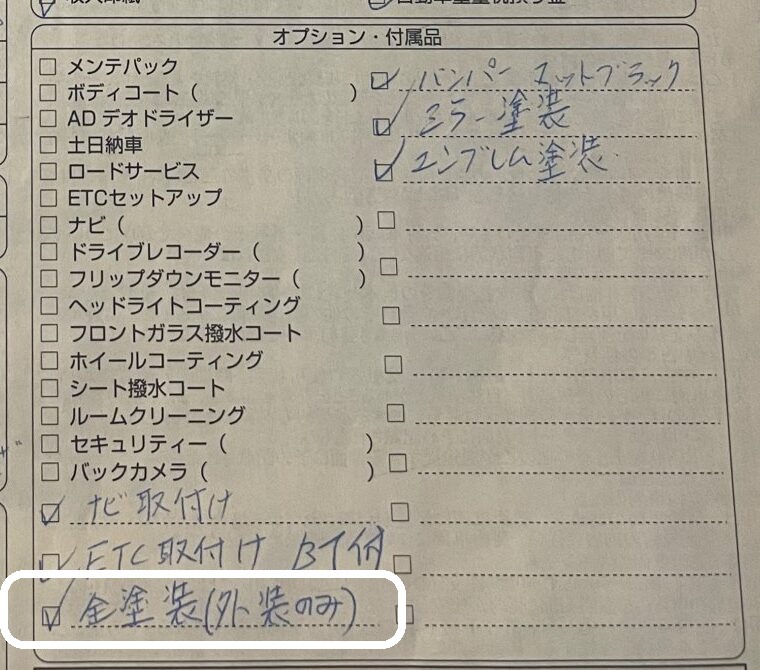 オプション・付属品
□ メンテパック
□ ボディコート（　　　）
□ AD デオドライザー
□ 土日納車
□ ロードサービス
□ ETCセットアップ
□ ナビ（　　　）
□ ドライブレコーダー（　　　）
□ フリップダウンモニター（　　　）
□ ヘッドライトコーティング
□ フロントガラス撥水コート
□ ホイールコーティング
□ シート撥水コート
□ ルームクリーニング
□ セキュリティー（　　　）
□ バックカメラ（　　　）
☑ ナビ取付け
☑ ETC取付け BT付
☑ 全塗装(外装のみ)
☑ バンパー マットブラック
☑ ミラー塗装
☑ エンブレム塗装